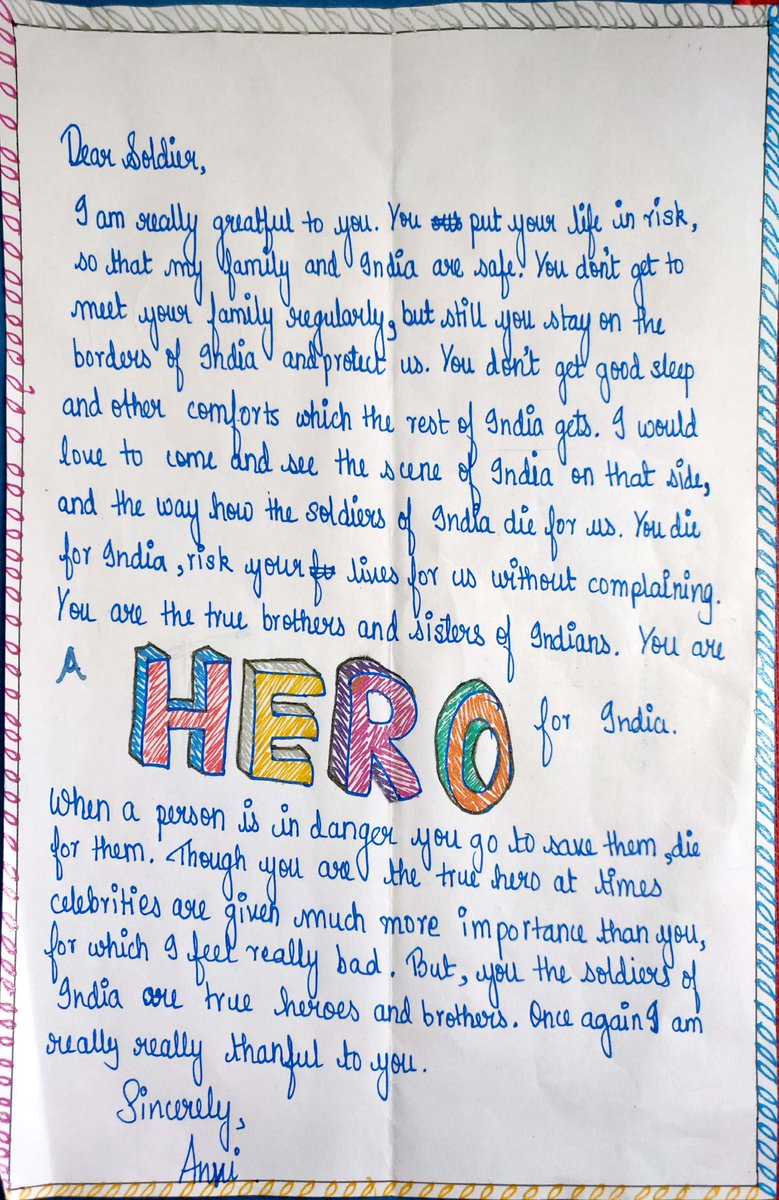 Dear Soldier,
I am really greatful to you. You put your life in risk,
so that my family and India are safe. You don't get to
meet your family regularly, but still you stay on the
borders of India and protect us. You don't get good sleep
and other comforts which the rest of India gets. I would
love to come and see the scene of India on that side,
and the way how the soldiers of India die for us. You die
for India, risk your lives for us without complaining.
You are the true brothers and sisters of Indians. You are
A HERO for India.
When a person is in danger you go to save them, die
for them. Though you are the true hero at times
celebrities are given much more importance than you,
for which I feel really bad. But, you the soldiers of
India are true heroes and brothers. Once again I am
really really thanful to you.
Sincerely,